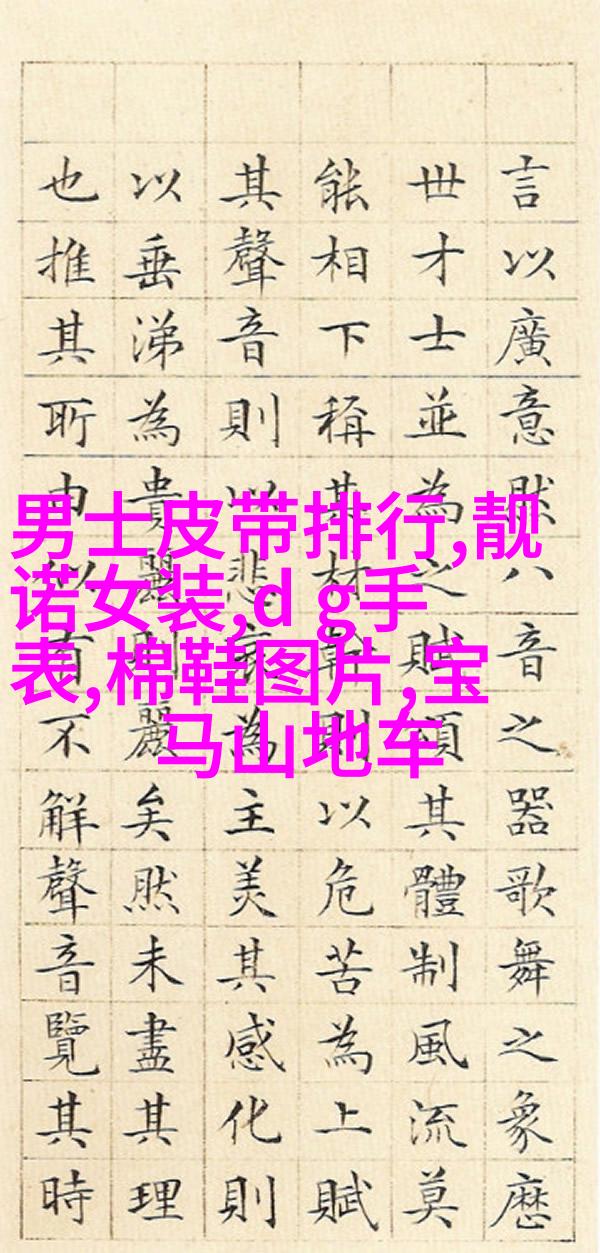 言以廣意然八音之器歌舞之象歷
世才士並為之賦頌其體制風流莫
能相下稱其材幹則以危苦為上賦
其聲音則以悲哀為主美其感化則
以垂涕為貴麗則麗矣然未盡其理
也推其所由似有不解聲音覽其時
男士皮带排行,靓
诺女装,d g手
表,棉鞋图片,宝
马山地车